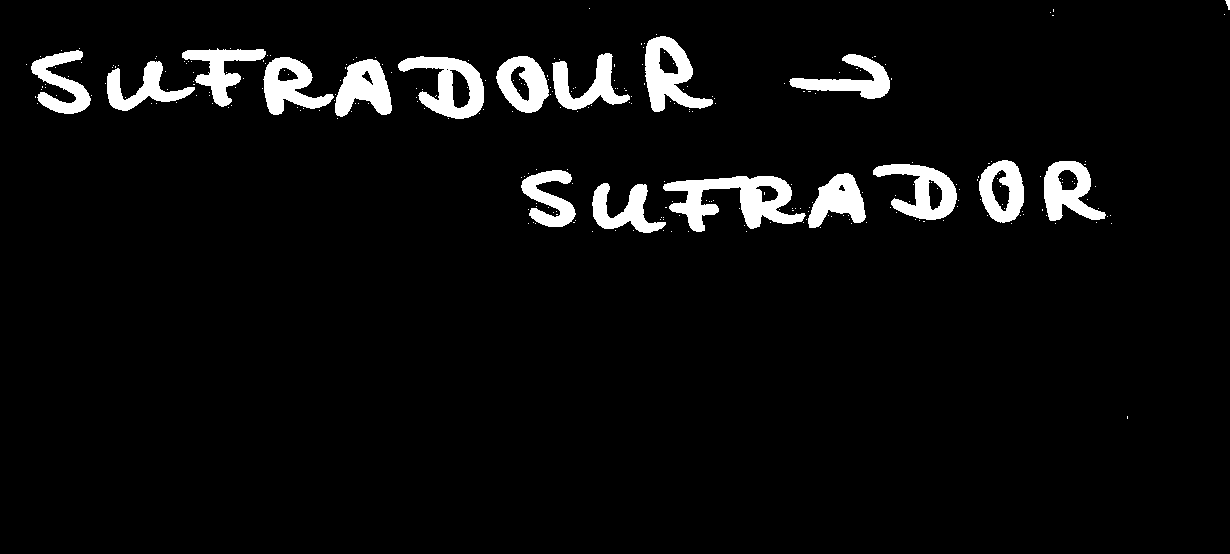 SUFRADOUR →
SUFRADOR